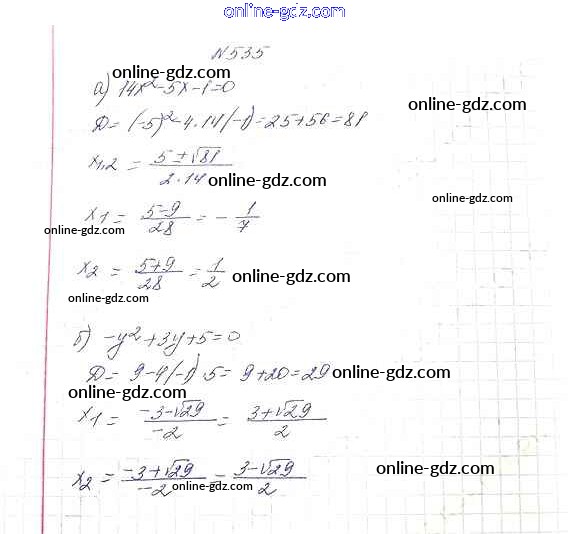 online-gdz.com
N535
online-gdz.com
а) 14x²-5x-1=0
online-gdz.com
D=(-5)²-4·14(-1)=25+56=81
x1,2 = 5±√81 / 2·14
online-gdz.com
online-gdz.com
x1 = 5-9 / 28 = - 1/7
online-gdz.com
x2 = 5+9 / 28 = 1/2
online-gdz.com
online-gdz.com
б) -y²+3y+5=0
D= 9-4(-1)·5= 9+20=29
online-gdz.com
online-gdz.com
x1 = -3-√29 / -2 = 3+√29 / 2
x2 = -3+√29 / -2 = 3-√29 / 2
online-gdz.com
online-gdz.com